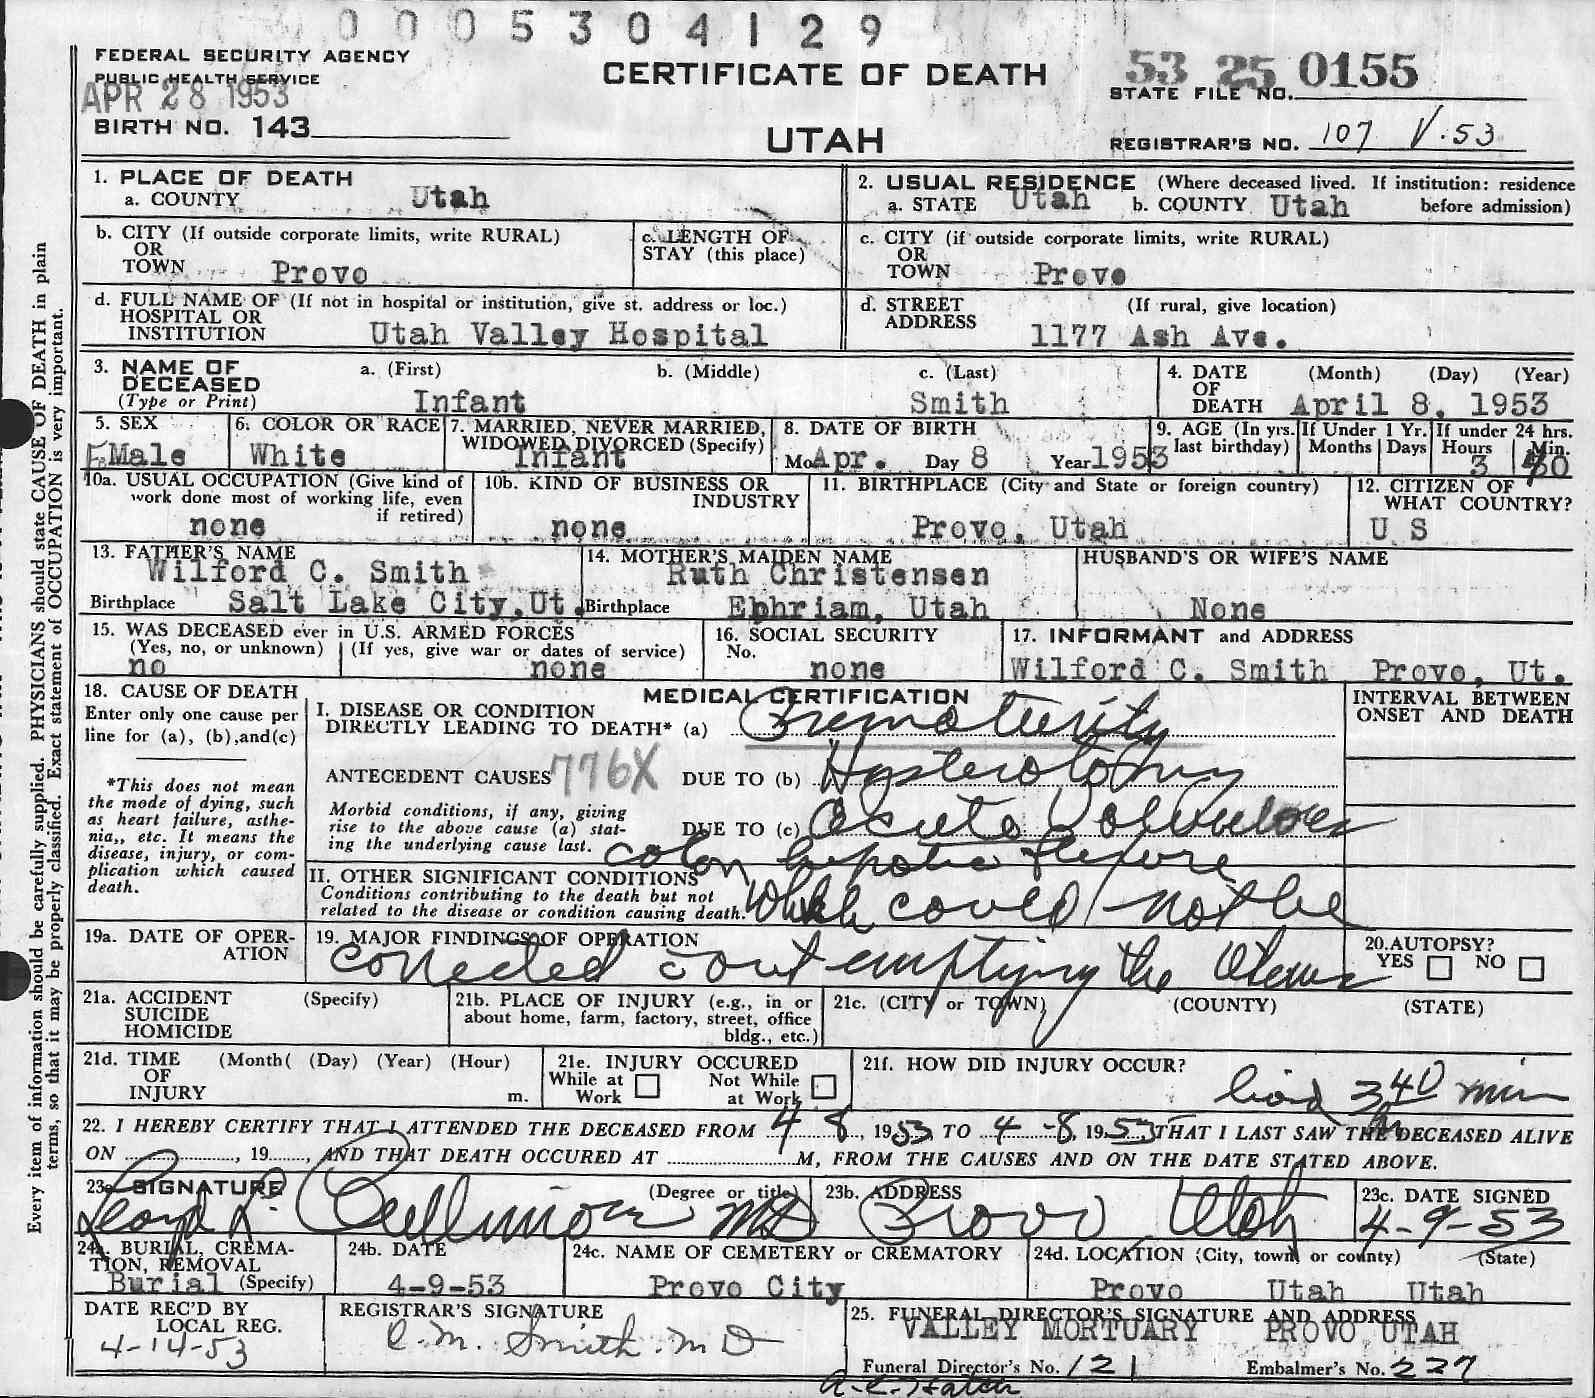 0005304129
FEDERAL SECURITY AGENCY
PUBLIC HEALTH SERVICE
APR 28 1953
BIRTH NO. 143
CERTIFICATE OF DEATH
UTAH
53 25 0155
STATE FILE NO.
REGISTRAR'S NO. 107 V.53
1. PLACE OF DEATH
a. COUNTY Utah
2. USUAL RESIDENCE (Where deceased lived. If institution: residence before admission)
a. STATE Utah b. COUNTY Utah
b. CITY (If outside corporate limits, write RURAL)
OR
TOWN Provo
c. LENGTH OF
STAY (this place)
c. CITY (if outside corporate limits, write RURAL)
OR
TOWN Provo
d. FULL NAME OF (If not in hospital or institution, give st. address or loc.)
HOSPITAL OR
INSTITUTION Utah Valley Hospital
d. STREET (If rural, give location)
ADDRESS 1177 Ash Ave.
3. NAME OF DECEASED
(Type or Print)
a. (First) b. (Middle) c. (Last)
Infant Smith
4. DATE OF DEATH (Month) (Day) (Year)
April 8, 1953
5. SEX
FeMale
6. COLOR OR RACE
White
7. MARRIED, NEVER MARRIED,
WIDOWED, DIVORCED (Specify)
Infant
8. DATE OF BIRTH
Mo. Apr. Day 8 Year 1953
9. AGE (In yrs. last birthday)
If Under 1 Yr.
Months Days
If under 24 hrs.
Hours Min.
3 40
10a. USUAL OCCUPATION (Give kind of
work done most of working life, even
if retired)
none
10b. KIND OF BUSINESS OR
INDUSTRY
none
11. BIRTHPLACE (City and State or foreign country)
Provo, Utah
12. CITIZEN OF
WHAT COUNTRY?
U S
13. FATHER'S NAME
Wilford C. Smith
Birthplace Salt Lake City, Ut.
14. MOTHER'S MAIDEN NAME
Ruth Christensen
Birthplace Ephriam, Utah
HUSBAND'S OR WIFE'S NAME
None
15. WAS DECEASED ever in U.S. ARMED FORCES
(Yes, no, or unknown) (If yes, give war or dates of service)
no none
16. SOCIAL SECURITY
No.
none
17. INFORMANT and ADDRESS
Wilford C. Smith Provo, Ut.
18. CAUSE OF DEATH
Enter only one cause per
line for (a), (b), and (c)
*This does not mean
the mode of dying, such
as heart failure, asthe-
nia,, etc. It means the
disease, injury, or com-
plication which caused
death.
MEDICAL CERTIFICATION
I. DISEASE OR CONDITION
DIRECTLY LEADING TO DEATH* (a) Prematurity
ANTECEDENT CAUSES 776X DUE TO (b) Hysterotomy
Morbid conditions, if any, giving
rise to the above cause (a) stat-
ing the underlying cause last.
DUE TO (c) Acute Volvulus
colon hepatic flexure
II. OTHER SIGNIFICANT CONDITIONS
Conditions contributing to the death but not
related to the disease or condition causing death.
Which could not be
INTERVAL BETWEEN
ONSET AND DEATH
19a. DATE OF OPER-
ATION
19. MAJOR FINDINGS OF OPERATION
corrected s out emptying the Uterus
20. AUTOPSY?
YES NO
21a. ACCIDENT (Specify)
SUICIDE
HOMICIDE
21b. PLACE OF INJURY (e.g., in or
about home, farm, factory, street, office
bldg., etc.)
21c. (CITY or TOWN) (COUNTY) (STATE)
21d. TIME (Month( (Day) (Year) (Hour)
OF
INJURY m.
21e. INJURY OCCURED
While at Work Not While at Work
21f. HOW DID INJURY OCCUR?
lived 3 h 40 min
22. I HEREBY CERTIFY THAT I ATTENDED THE DECEASED FROM 4 8, 1953, TO 4-8, 1953 THAT I LAST SAW THE DECEASED ALIVE
ON , 19 , AND THAT DEATH OCCURED AT M, FROM THE CAUSES AND ON THE DATE STATED ABOVE.
23a. SIGNATURE (Degree or title)
Lloyd L. Cullimore MD
23b. ADDRESS
Provo Utah
23c. DATE SIGNED
4-9-53
24a. BURIAL, CREMA-
TION, REMOVAL
Burial (Specify)
24b. DATE
4-9-53
24c. NAME OF CEMETERY or CREMATORY
Provo City
24d. LOCATION (City, town or county) (State)
Provo Utah Utah
DATE REC'D BY
LOCAL REG.
4-14-53
REGISTRAR'S SIGNATURE
C. M. Smith. M D
25. FUNERAL DIRECTOR'S SIGNATURE AND ADDRESS
VALLEY MORTUARY PROVO UTAH
Funeral Director's No. 121 Embalmer's No. 227
Every item of information should be carefully supplied. PHYSICIANS should state CAUSE OF DEATH in plain
terms, so that it may be properly classified. Exact statement of OCCUPATION is very important.